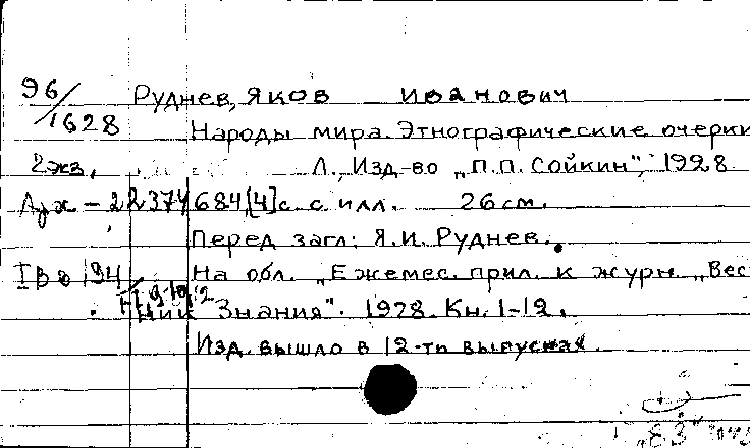 96/1628 Руднев, Яков Иванович
Народы мира. Этнографические очерки
2 экз. Л., Изд-во „П.П. Сойкин", 1928.
22374 684, [4] с. с илл. 26 см.
Перед загл: Я.И. Руднев.
I В 8/94 На обл. „Ежемес. прил. к журн. „Вест
ник Знания". 1928. Кн. 1-12.
Изд. вышло в 12-ти выпусках.